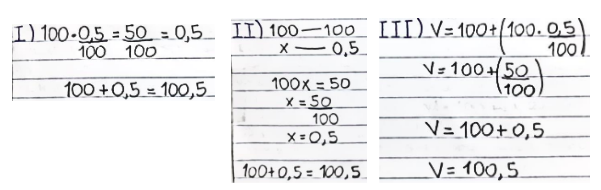 I) 100 · 0,5/100 = 50/100 = 0,5
100 + 0,5 = 100,5
II) 100 — 100
x — 0,5
100x = 50
x = 50/100
x = 0,5
100 + 0,5 = 100,5
III) V = 100 + (100 · 0,5/100)
V = 100 + (50/100)
V = 100 + 0,5
V = 100,5